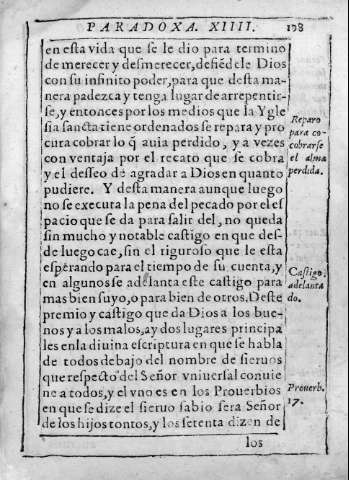 PARADOXA. XIIII. 108
en esta vida que se le dio para termino
de merecer y desmerecer, defiēdele Dios
con su infinito poder, para que desta ma-
nera padezca y tenga lugar de arrepentir-
se, y entonces por los medios que la Ygle
sia sancta tiene ordenados se repara y pro
cura cobrar lo q̄ auia perdido, y a vezes
con ventaja por el recato que se cobra
y el desseo de agradar a Dios en quanto
pudiere. Y desta manera aunque luego
no se executa la pena del pecado por el es
pacio que se da para salir del, no queda
sin mucho y notable castigo en que des-
de luego cae, sin el riguroso que le esta
esperando para el tiempo de su cuenta, y
en algunos se adelanta este castigo para
mas bien suyo, o para bien de otros. Deste
premio y castigo que da Dios a los bue-
nos y a los malos, ay dos lugares principa
les en la diuina escriptura en que se habla
de todos debajo del nombre de sieruos
que respecto del Señor vniuersal conuie
ne a todos, y el vno es en los Prouerbios
en que se dize el sieruo sabio sera Señor
de los hijos tontos, y los setenta dizen de
los
Reparo
para co-
cobrarse
el alma
perdida.
Castigo
adelanta
do.
Prouerb.
17.